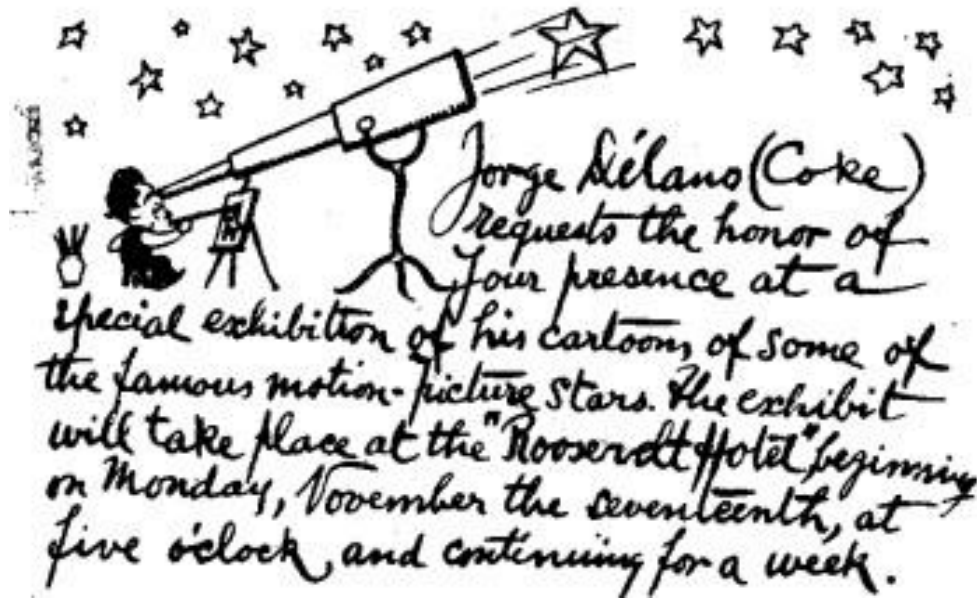 Jorge Délano (Coke)
requests the honor of
your presence at a
special exhibition of his cartoons of some of
the famous motion-picture stars. The exhibit
will take place at the "Roosevelt Hotel", beginning
on Monday, November the seventeenth, at
five o'clock, and continuing for a week.